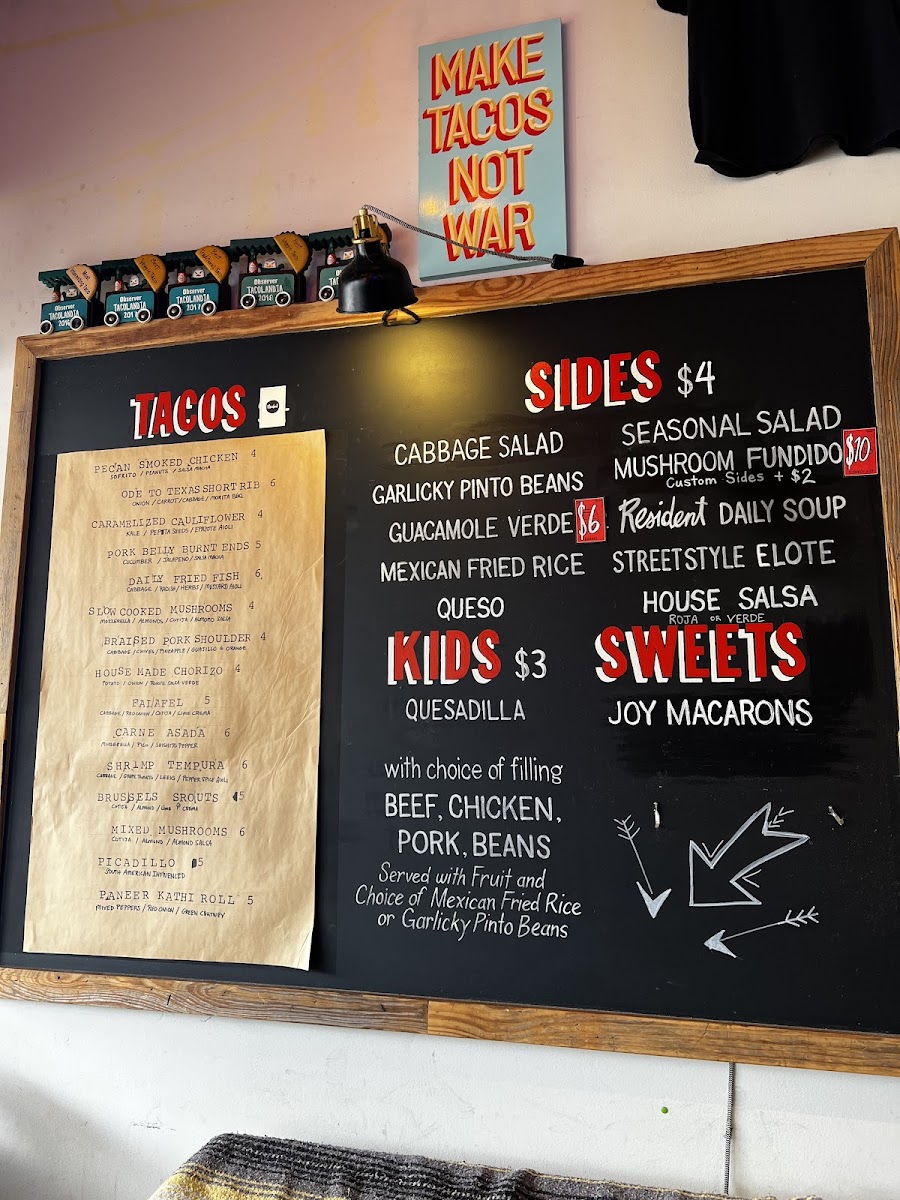 MAKE
TACOS
NOT
WAR
Observer
TACOLANDIA
2016
Observer
TACOLANDIA
2017
Observer
TACOLANDIA
2017
Observer
TACOLANDIA
2018
TACOS
PECAN SMOKED CHICKEN 4
SOFRITO / PEANUTS / SALSA MACHA
ODE TO TEXAS SHORT RIB 6
ONION / CARROT / CABBAGE / MORITA BBQ
CARAMELIZED CAULIFLOWER 4
KALE / PEPITA SEEDS / EPAZOTE AIOLI
PORK BELLY BURNT ENDS 5
CUCUMBER / JALAPENO / SALSA MACHA
DAILY FRIED FISH 6
CABBAGE / RADISH / HERBS / MUSTARD AIOLI
SLOW COOKED MUSHROOMS 4
MOZZARELLA / ALMONDS / COTIJA / ALMOND SALSA
BRAISED PORK SHOULDER 4
CABBAGE / CHIVES / PINEAPPLE / GUAJILLO & ORANGE
HOUSE MADE CHORIZO 4
POTATO / ONION / SALSA VERDE
FALAFEL 5
CABBAGE / RED ONION / COTIJA / LIME CREMA
CARNE ASADA 6
MOZZARELLA / / SHISHITO PEPPER
SHRIMP TEMPURA 6
CABBAGE / / LEEKS / PEPPER SPICE AIOLI
BRUSSELS SROUTS 5
COTIJA / ALMOND / LIME CREMA
MIXED MUSHROOMS 6
COTIJA / ALMOND / ALMOND SALSA
PICADILLO 5
SOUTH AMERICAN INFLUENCED
PANEER KATHI ROLL 5
MIXED PEPPERS / RED ONION / GREEN CHUTNEY
SIDES $4
CABBAGE SALAD
GARLICKY PINTO BEANS
GUACAMOLE VERDE $6
MEXICAN FRIED RICE
QUESO
SEASONAL SALAD
MUSHROOM FUNDIDO $10
Custom Sides + $2
Resident DAILY SOUP
STREETSTYLE ELOTE
HOUSE SALSA
ROJA OR VERDE
KIDS $3
QUESADILLA
with choice of filling
BEEF, CHICKEN,
PORK, BEANS
Served with Fruit and
Choice of Mexican Fried Rice
or Garlicky Pinto Beans
SWEETS
JOY MACARONS